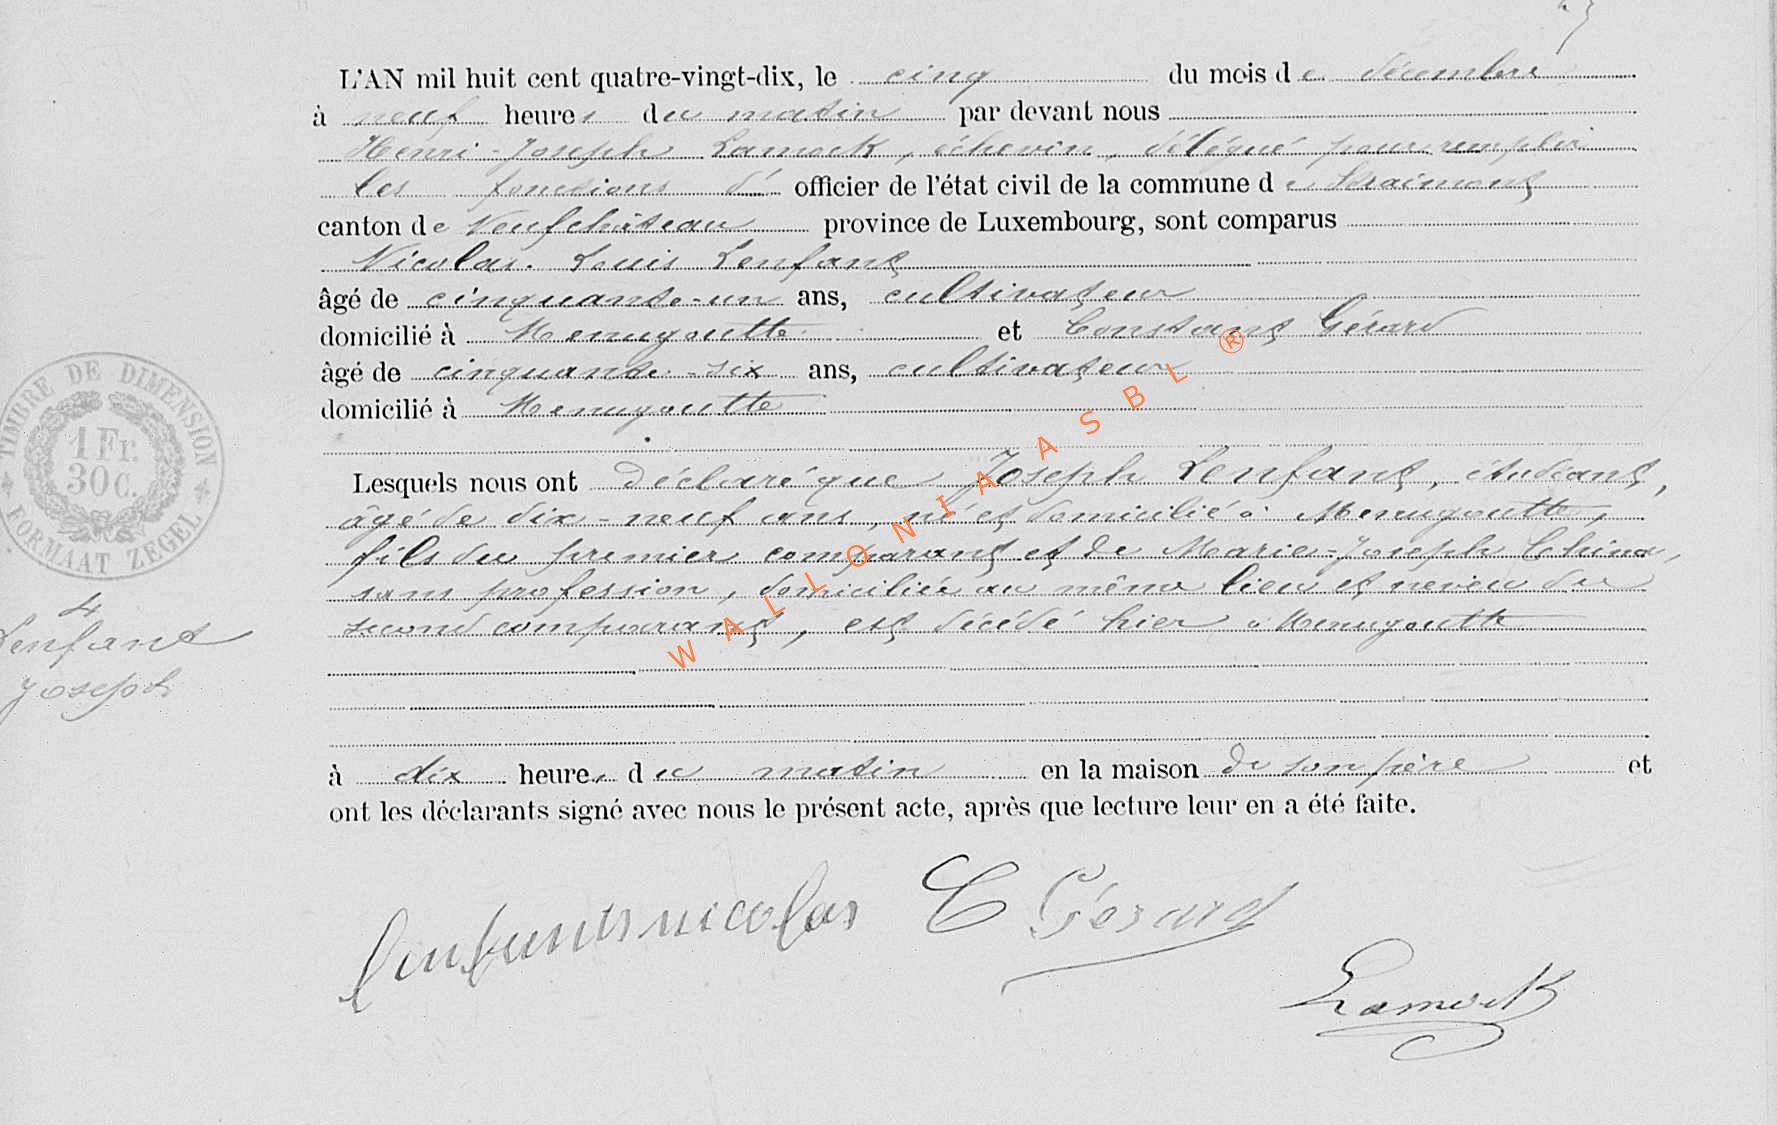 L'AN mil huit cent quatre-vingt-dix, le cinq du mois de décembre
à neuf heures du matin par devant nous
Henri-Joseph Lamock, échevin, délégué pour remplir
les fonctions d' officier de l'état civil de la commune de Straimont
canton de Neufchâteau province de Luxembourg, sont comparus
Nicolas-Louis Lenfant
âgé de cinquante-un ans, cultivateur
domicilié à Menugoutte et Constant Gérard
âgé de cinquante-six ans, cultivateur
domicilié à Menugoutte
Lesquels nous ont déclaré que Joseph Lenfant, étudiant,
âgé de dix-neuf ans, né et domicilié à Menugoutte,
fils du premier comparant et de Marie-Joseph China,
sans profession, domiciliée au même lieu et neveu du
second comparant, est décédé hier à Menugoutte
à dix heures du matin en la maison de son père et
ont les déclarants signé avec nous le présent acte, après que lecture leur en a été faite.
TIMBRE DE DIMENSION
1 Fr.
30 C.
FORMAAT ZEGEL
4
Lenfant
Joseph
nicolas C Gérard
Lamock
WALLONIA ASBL ®